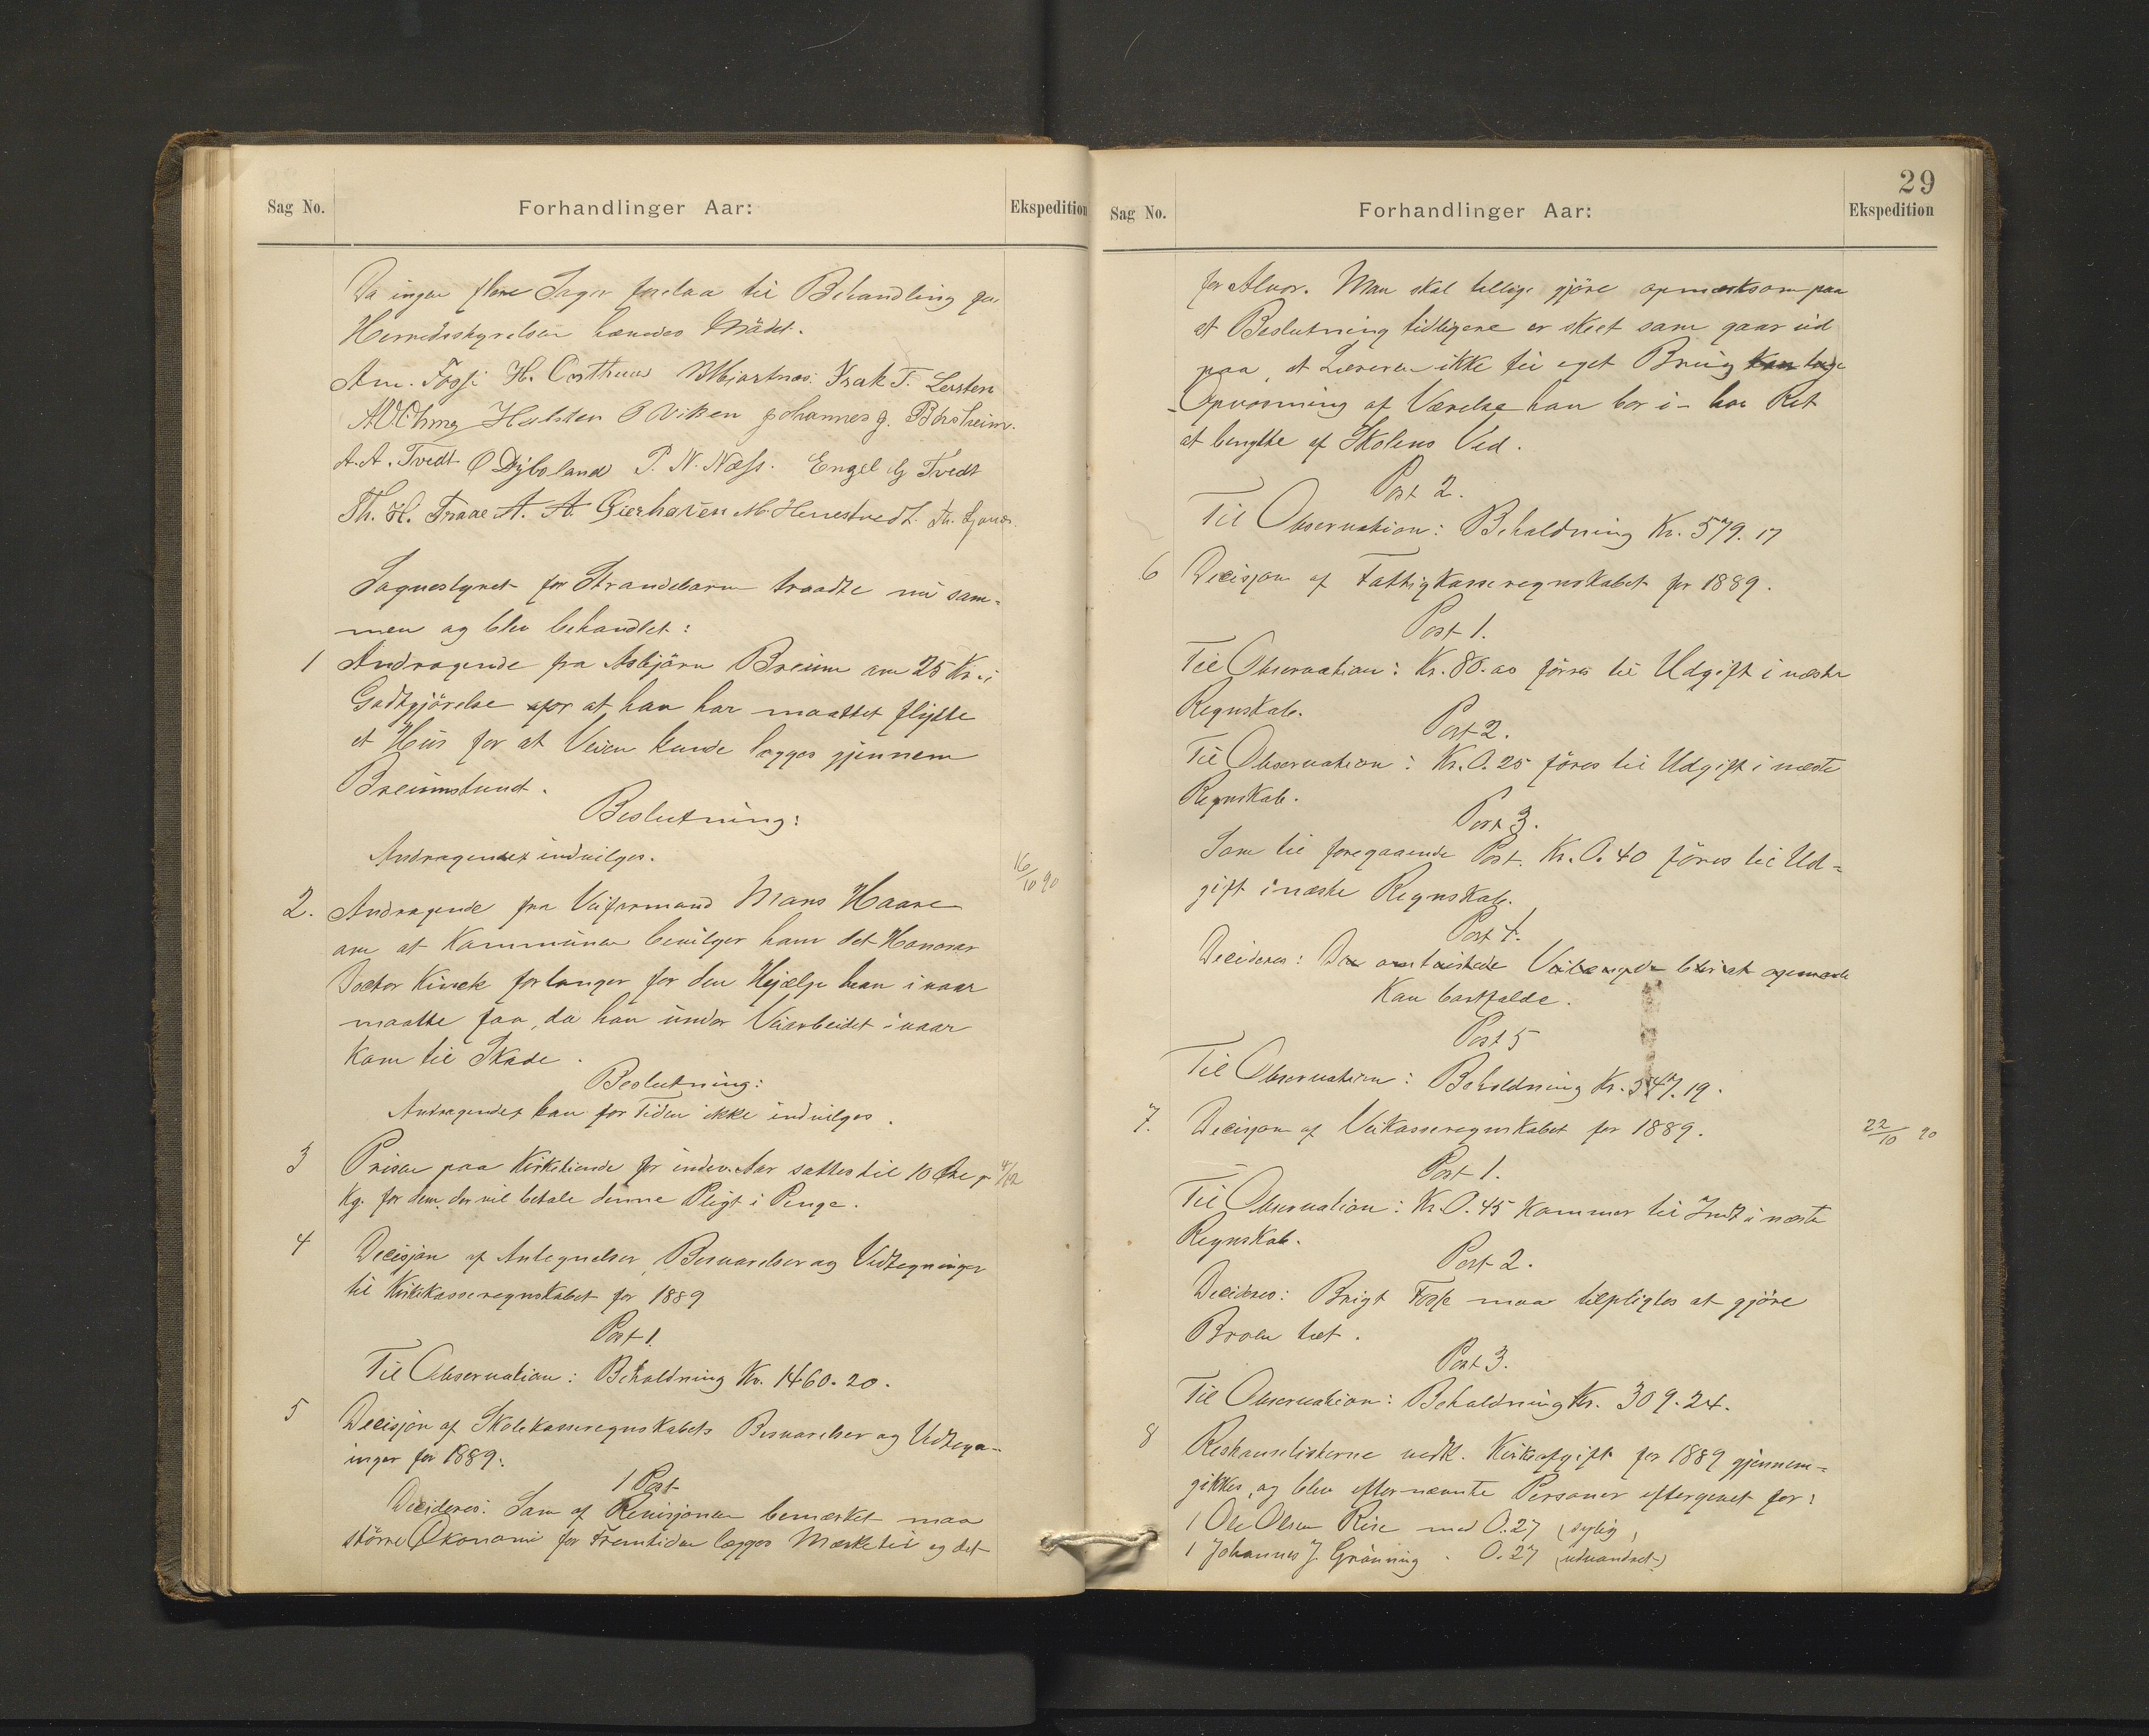 Sag No.
Forhandlinger Aar:
Ekspedition
Da ingen flere Sager forelaa til Behandling for
Herredsstyrelsen hævedes Mödet.
Am. Fosse H. Isak T.
Hulsten O Viken Johannes J. Börsheim.
A. A. Tvedt O Dybsland P. N. Næss. Engel Tvedt
Th. H. Traae A. A. Gierhoven M. Hennestvedt. Th.
Sognestyret for Strandebarm traadte nu sam-
men og blev behandlet:
1 Andragende fra Asbjörn Breium om 25 Kr. i
Godtgjörelse for at han har maattet flytte
et Hus for at Veien kunde lægges gjennem
Breiumstund.
Beslutning:
Andragendet indvilges.
16/10 90
2. Andragende fra Veiformand Mons Haare
om at Kommunen bevilger ham det Honorar
Doctor Kinck forlanger for den Hjælp han i vaar
maatte faa, da han under Veiarbeidet i vaar
kom til Skade.
Beslutning:
Andragendet kan for Tiden ikke indvilges.
3 Prisen paa Kirketiende for indev. Aar sattes til 10 Øre pr 4/12
Kg. for dem, der vil betale denne Pligt i Penge.
4 Decisjon af Antegnelser, Besvarelser og Vidtegninger
til Kirkekasseregnskabet for 1889
Post 1.
Til Observation: Beholdning Kr. 1460.20.
5 Decisjon af Skolekasseregnskabets Besvarelser og Vidtegn-
inger for 1889.
1 Post
Decideres: Som af Revisjonen bemærket maa
större Økonomi for Fremtiden lægges Mærke til og det
29
Sag No.
Forhandlinger Aar:
Ekspedition
for Alvor. Man skal tillige gjöre opmærksom paa
at Beslutning tidligere er skeet som gaar ud
paa, at Læreren ikke til eget Brug
- Opvarming af Værelse han bor i - har Ret
at benytte af Skolens Ved.
Post 2.
Til Observation: Beholdning Kr. 579.17
6 Decisjon af Fattigkasseregnskabet for 1889.
Post 1.
Til Observation: Kr. 80.00 föres til Udgift i næste
Regnskab.
Post 2.
Til Observation: Kr. 0.25 föres til Udgift i næste
Regnskab.
Post 3.
Som til foregaaende Post. Kr. 0.40 föres til Ud-
gift i næste Regnskab.
Post 4.
Decideres: Den
Kan bortfalde.
Post 5
Til Observation: Beholdning Kr. 547.19.
7. Decisjon af Veikasseregnskabet for 1889.
22/10 90
Post 1.
Til Observation: Kr. 0.45 kommer til Indt i næste
Regnskab.
Post 2.
Decideres: Brigt Fosse maa tilpligtes at gjöre
Broen tæt.
Post 3.
Til Observation: Beholdning Kr. 309.24.
8 Restanselisterne vedk. Kirkeafgift for 1889 gjennem-
gikkes, og blev efternævnte Personer eftergivet for:
1 Ole Olsen Rise med 0.27 (sylig)
1 Johannes J. Grönning - 0.27 (udvandret)